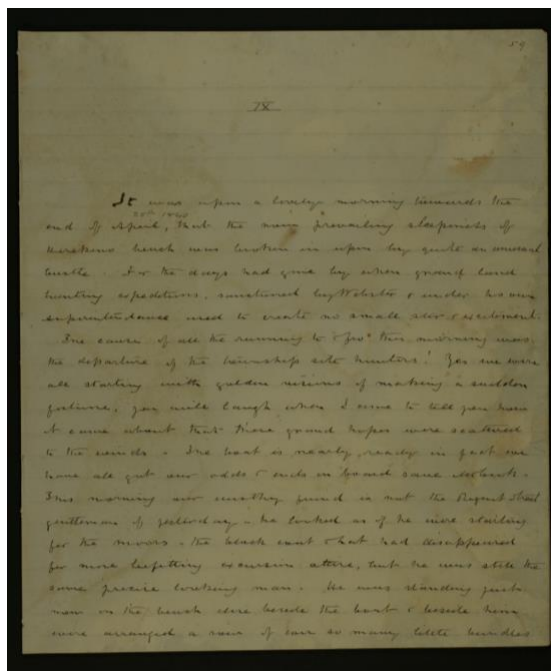 59
IX
It was upon a lovely morning towards the
28th 1840
end of April, that the now prevailing sleepiness of
Herekino beach was broken in upon by quite an unusual
bustle. For the days had gone by when grand land
hunting expeditions, sanctioned by Webster & under his own
superintendance used to create no small stir & excitement.
The cause of all the running to & fro' this morning was
the departure of the township site hunters! Yes we were
all starting with golden visions of making a sudden
fortune, you will laugh when I come to tell you how
it came about that these grand hopes were scattered
to the winds. The boat is nearly ready in fact we
have all got our odds & ends on board save
This morning our worthy friend is not the Regent Street
gentleman of yesterday - he looked as if he were starting
for the moors - the black coat & hat had disappeared
for more befitting excursion attire, but he was still the
same precise looking man. He was standing just
now on the beach close beside the boat & beside him
were arranged a row of ever so many little bundles